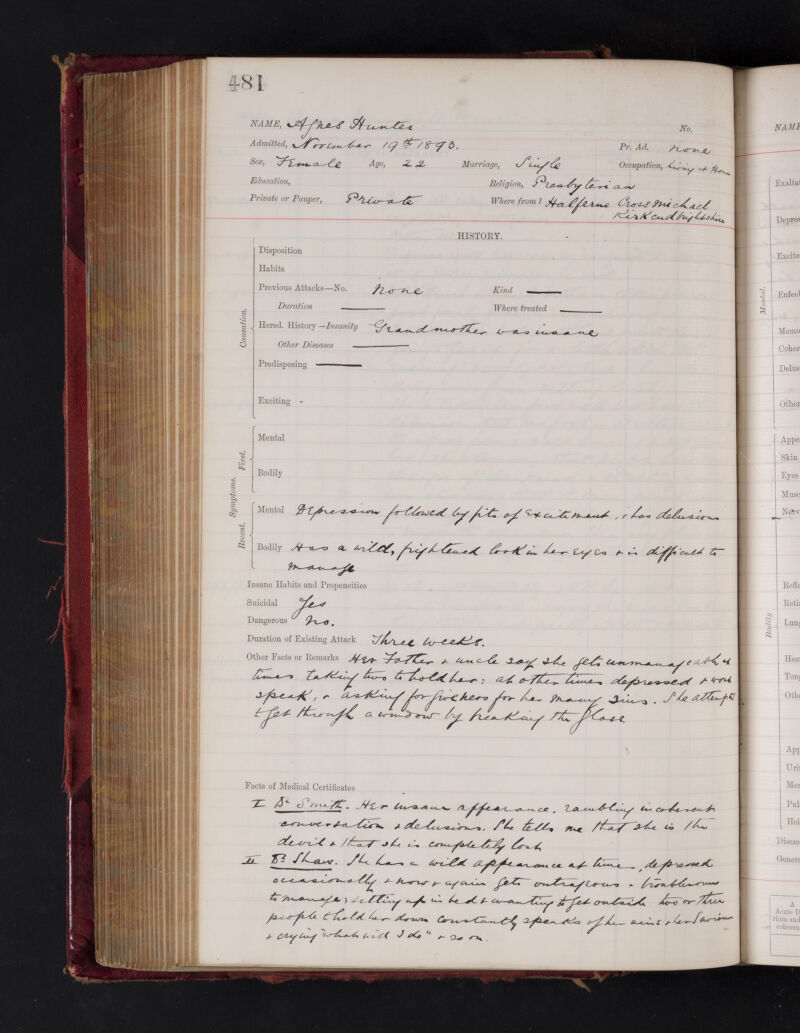 481
NAME, Agnes Hunter No.
Admitted, November 19th 1893. Pr. Ad. none
Sex, Female Age, 22 Marriage, Single Occupation, living at Home
Education, Religion, Presbyterian
Private or Pauper, Private Where from? Halferne Crossmichael
Kirkcudbrightshire
HISTORY.
Disposition
Habits
Previous Attacks—No. None Kind —
Duration — Where treated —
Causation.
Hered. History—Insanity Grandmother was insane
Other Diseases —
Predisposing —
Exciting -
Symptoms.
First.
Mental
Bodily
Recent.
Mental Depression followed by fits of excitement, & has delusions
Bodily Has a wild, frightened look in her eyes & is difficult to
manage
Insane Habits and Propensities
Suicidal Yes
Dangerous No.
Duration of Existing Attack Three weeks.
Other Facts or Remarks Her Father & uncle say she gets unmanageable at
times taking two to hold her; at other times depressed & wont
speak, & asking forgiveness for her many sins. She attempted
to get through a window by breaking the glass
Facts of Medical Certificates
I Dr Smith. Her insane appearance, rambling incoherent
conversation & delusions. She tells me that she is the
devil & that she is completely lost
II Dr Shaw. She has a wild appearance at times, depressed
occasionally & now & again gets outrageous & troublesome
to manage; sitting up in bed & wanting to get outside two or three
people to hold her down constantly speaks of her sins & her Saviour
& crying "what will I do" & so on.
NAME
Exaltat
Depres
Excite
Mental.
Enfeeb
Memo
Coher
Delus
Other
Appe
Skin
Eyes
Musc
Nerv
Bodily
Refle
Reti
Lung
Hear
Tong
Othe
App
Uri
Men
Pul
Hei
Diseas
Genera
A
Acute D
rium and
coheren